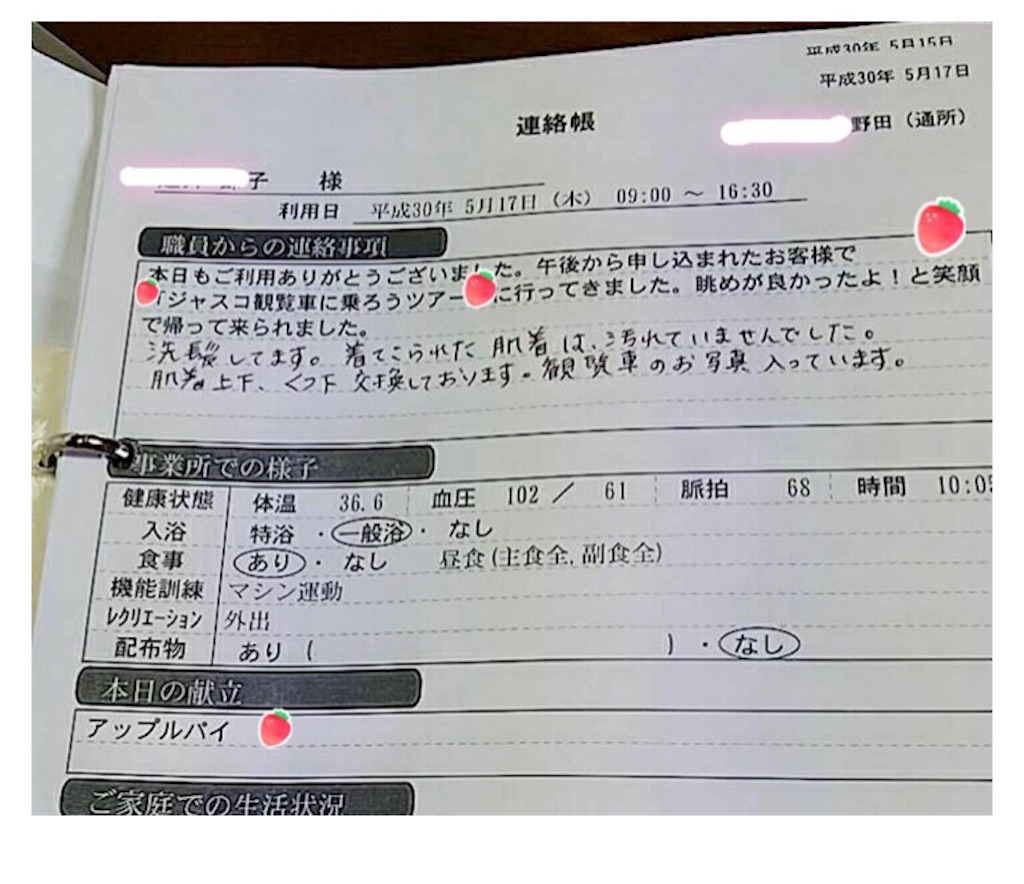 平成30年 5月15日
平成30年 5月17日
連絡帳
野田（通所）
子 様
利用日 平成30年 5月17日（木） 09:00 ～ 16:30
職員からの連絡事項
本日もご利用ありがとうございました。午後から申し込まれたお客様で
「ジャスコ観覧車に乗ろうツアー に行ってきました。眺めが良かったよ！と笑顔
で帰って来られました。
洗髪してます。着てこられた肌着は、汚れていませんでした。
肌着上下、くつ下交換しております。観覧車のお写真入っています。
事業所での様子
健康状態 体温 36.6 血圧 102 ／ 61 脈拍 68 時間 10:05
入浴 特浴 ・ 一般浴 ・ なし
食事 あり ・ なし 昼食(主食全, 副食全)
機能訓練 マシン運動
レクリエーション 外出
配布物 あり ( ) ・ なし
本日の献立
アップルパイ
ご家庭での生活状況